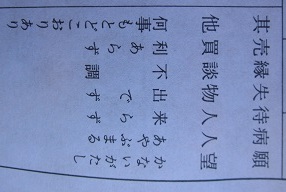 願望 かないがたし
病人 あやぶまる
待人 来らず
失物 出でず
縁談 不調
売買 利あらず
其他 何事もとどこおりあり